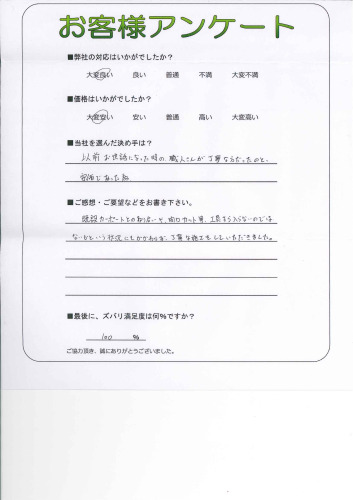 お客様アンケート
■弊社の対応はいかがでしたか？
大変良い 良い 普通 不満 大変不満
■価格はいかがでしたか？
大変安い 安い 普通 高い 大変高い
■当社を選んだ決め手は？
以前お世話になった時の、職人さんが丁寧な方だったのと、
安価であった為
■ご感想・ご要望などをお書き下さい。
既設カーポートとの
ないかという状況にもかかわらず、丁寧な施工をしていただきました。
■最後に、ズバリ満足度は何％ですか？
100 ％
ご協力頂き、誠にありがとうございました。